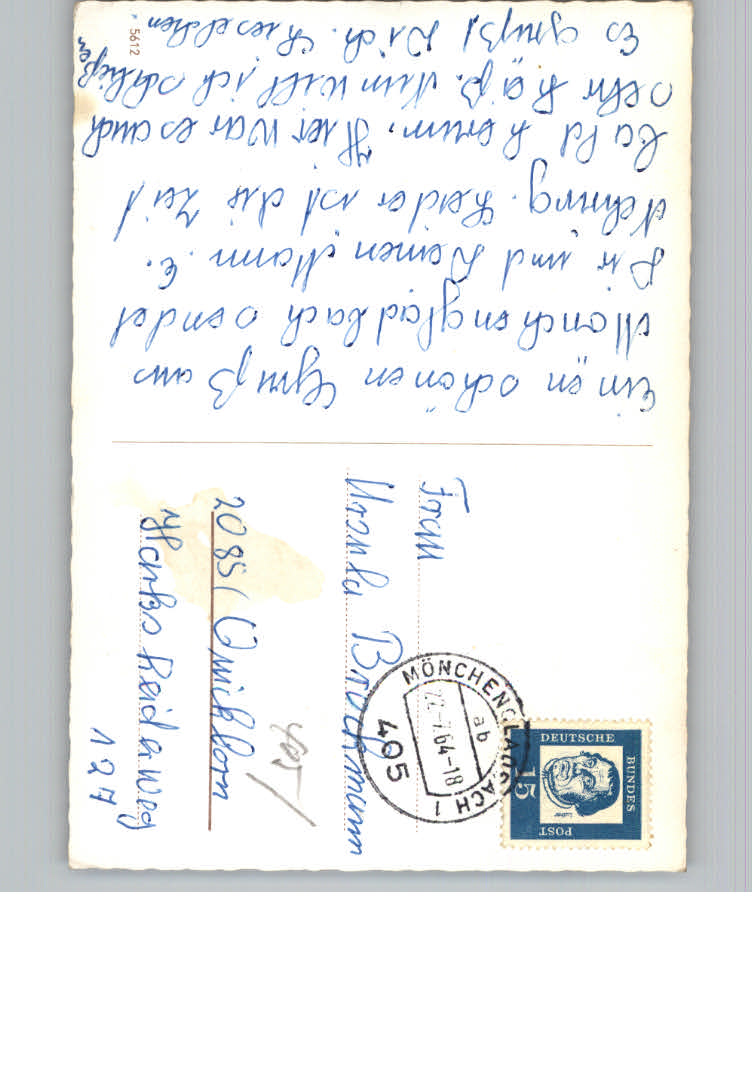 Einen schönen Gruß aus
Mönchengladbach sendet
Dir und Deinen Mann E.
Nehring. Leider ist die Zeit
bald herum. Hier war es auch
sehr heiß. Nun will ich schließen
Es grüßt Dich
5612
Frau
Ursula
2085 Quickborn
Weg
127
405
MÖNCHENGLADBACH 1
ab
22.-7.64-18
405
DEUTSCHE
BUNDES
POST
15
Luther